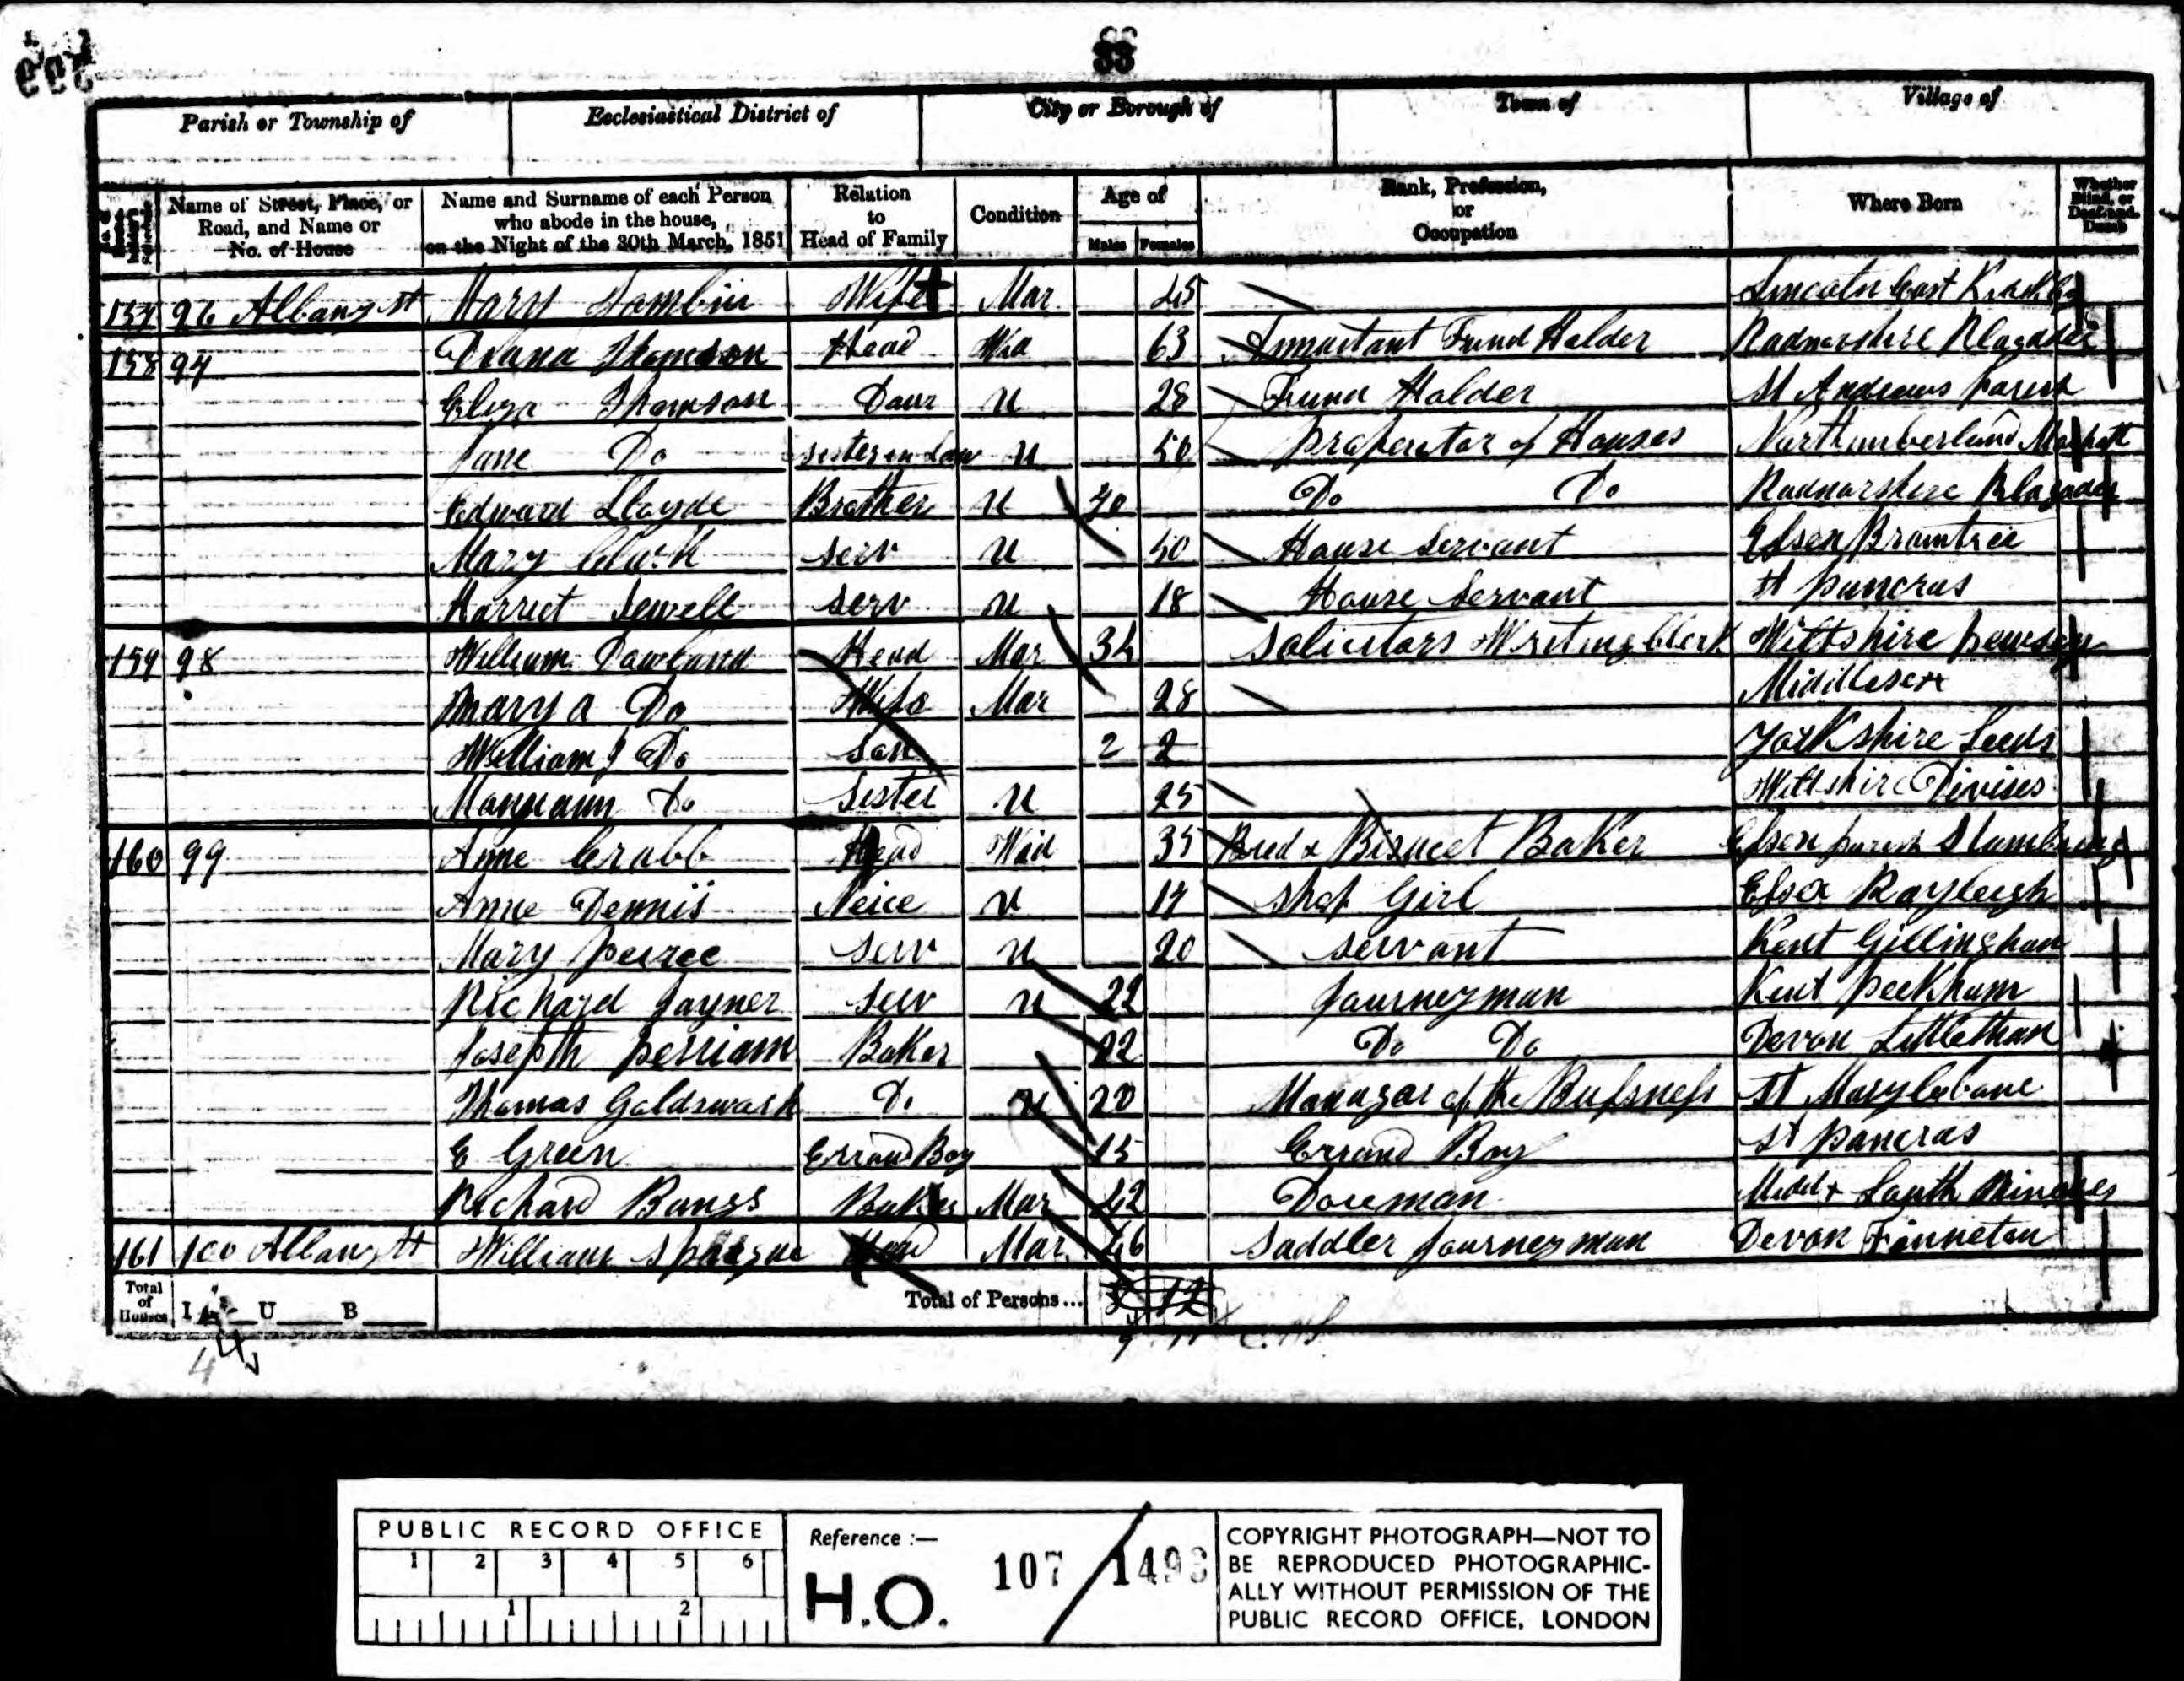 33
Parish or Township of Ecclesiastical District of City or Borough of Town of Village of
Name of Street, Place, or Road, and Name or No. of House
Name and Surname of each Person who abode in the house, on the Night of the 30th March, 1851
Relation to Head of Family
Condition
Age of
Males Females
Rank, Profession, or Occupation
Where Born
Whether Blind, or Deaf and Dumb
157 96 Albany St Mary Wife Mar 45 Lincoln East
158 97 Diana Thomson Head Wid 63 Annuitant Fund Holder Radnorshire
Eliza Thomson Daur U 28 Fund Holder St Andrews Parish
Jane Do Sister in Law U 50 Properietor of Houses Northumberland
Edward Lloyde Brother U 40 Do Do Radnorshire
Mary Clark Serv U 50 House Servant Essex Braintree
Harriet Sewell Serv U 18 House Servant St Pancras
159 98 William Dowland Head Mar 34 Solicitors Writing Clerk Wiltshire Pewsey
Mary A Do Wife Mar 28 Middlesex
William J Do Son 2 2 Yorkshire Leeds
Maryann Do Sister U 25 Wiltshire Divises
160 99 Anne Crabb Head Wid 35 Bred & Biscuet Baker Essex Parish
Anne Dennis Neice U 17 Shop Girl Essex Rayleigh
Mary Peirce Serv U 20 Servant Kent Gillingham
Richard Joyner Serv U 22 Journeyman Kent Peckham
Joseph Perriam Baker 22 Do Do Devon Littleham
Thomas Goldswash Do U 20 Manager of the Bussness St Marylebone
E Green Errand Boy 15 Errand Boy St Pancras
Richard Bangs Baker Mar 42 Doreman Middx South Mimmes
161 100 Albany St William Sprague Head Mar 46 Saddler Journeyman Devon
Total of Houses I U B Total of Persons... 12
4
9 11
PUBLIC RECORD OFFICE
1 2 3 4 5 6
1 2
Reference :—
H.O. 107/1493
COPYRIGHT PHOTOGRAPH—NOT TO
BE REPRODUCED PHOTOGRAPHIC-
ALLY WITHOUT PERMISSION OF THE
PUBLIC RECORD OFFICE, LONDON